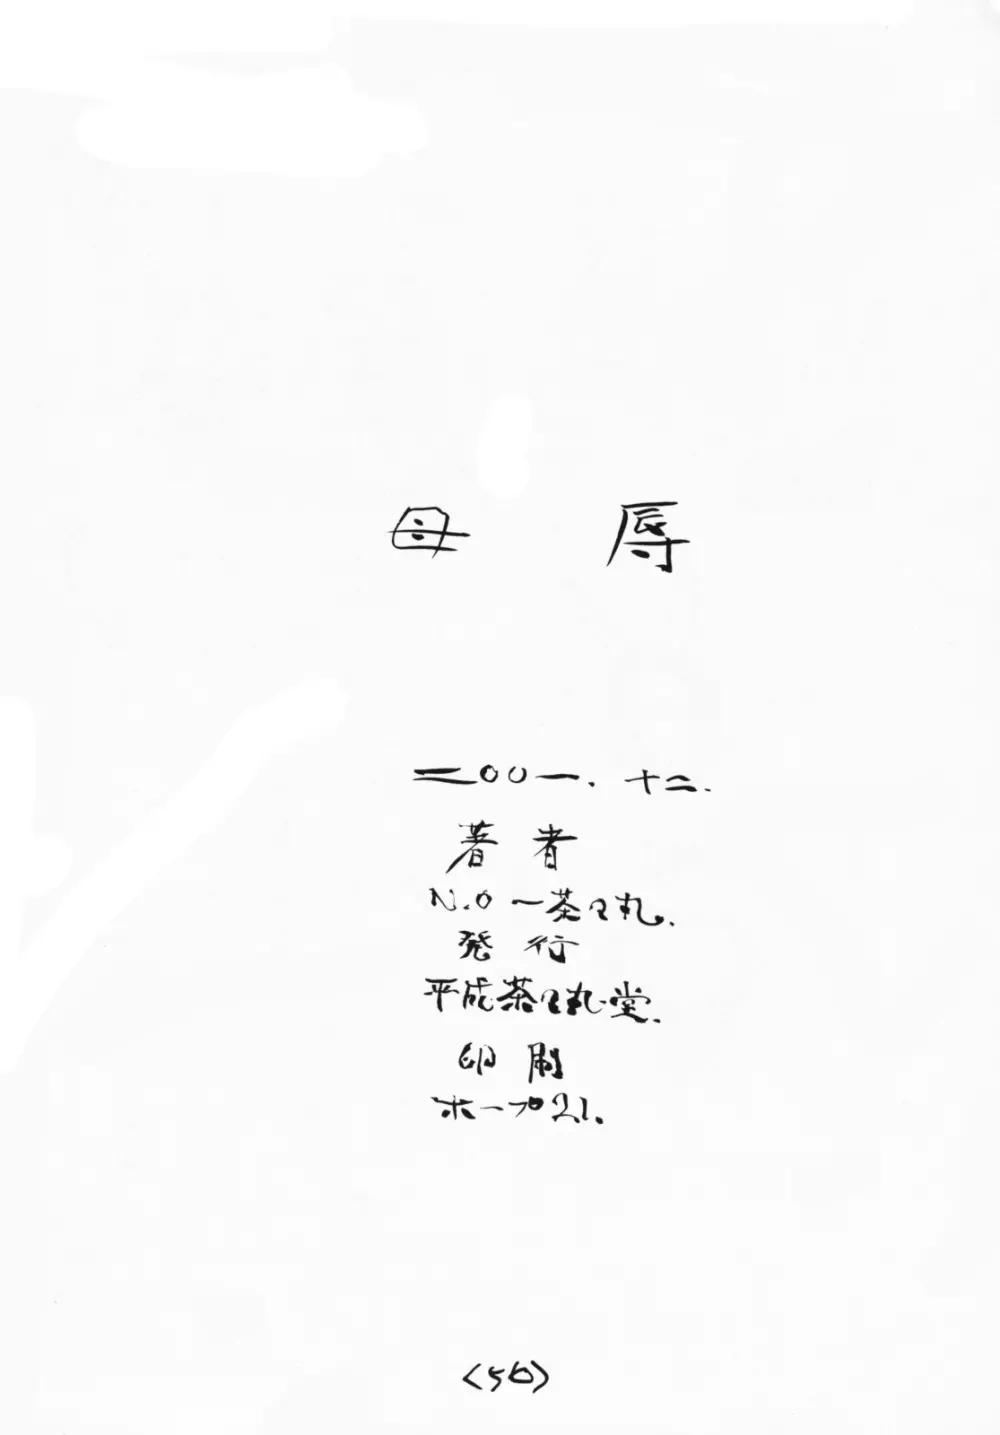 母 辱
二〇〇一.十二.
著者
N.O-茶々丸.
発行
平成茶々丸堂.
印刷
ホープ21.
<56>